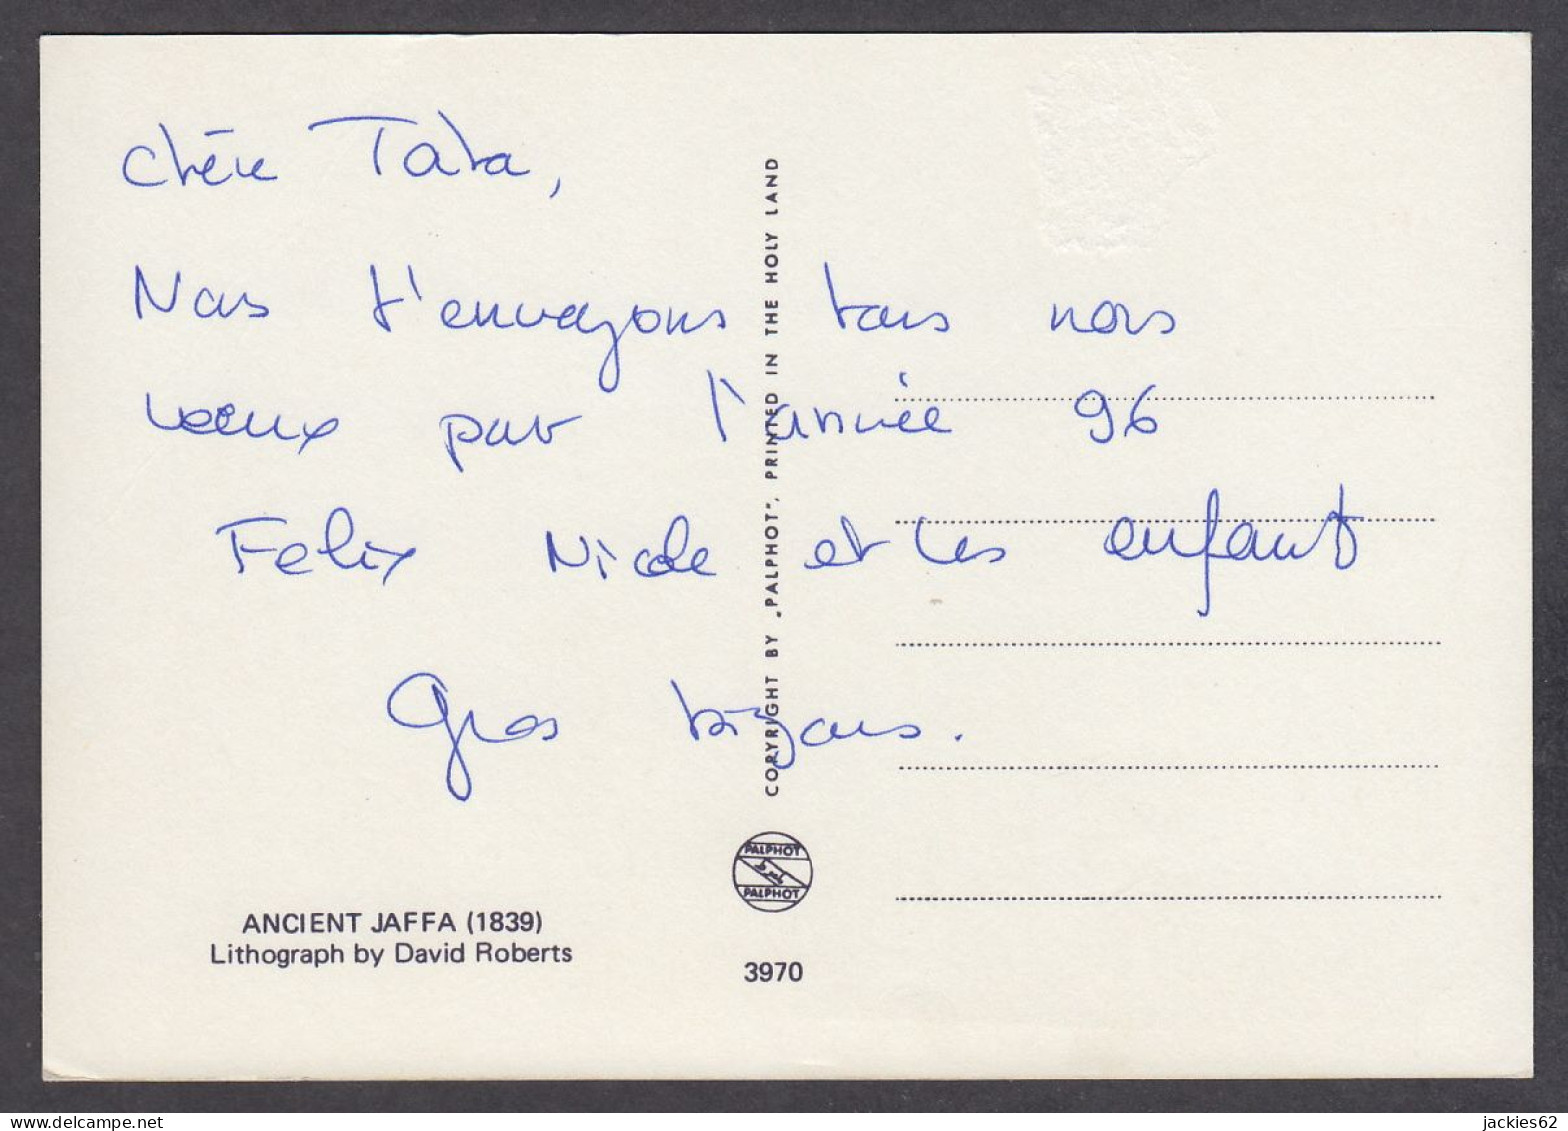 Chère Tata,
Nous t'envoyons tous nos
voeux pour l'année 96
Felix Nicole et les enfants
Gros bizous.
COPYRIGHT BY „PALPHOT", PRINTED IN THE HOLY LAND
PALPHOT
PALPHOT
ANCIENT JAFFA (1839)
Lithograph by David Roberts
3970
jackies62